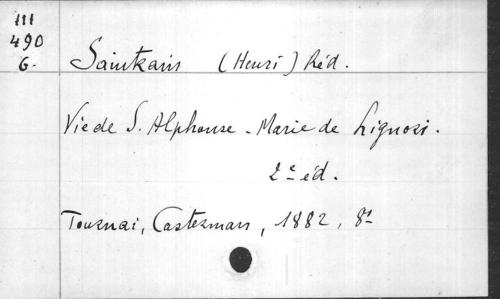 III
490
6.
Saintrain (Henri) Réd.
Vie de S. Alphonse-Marie de Liguori.
2e éd.
Tournai, Casterman, 1882, 8º